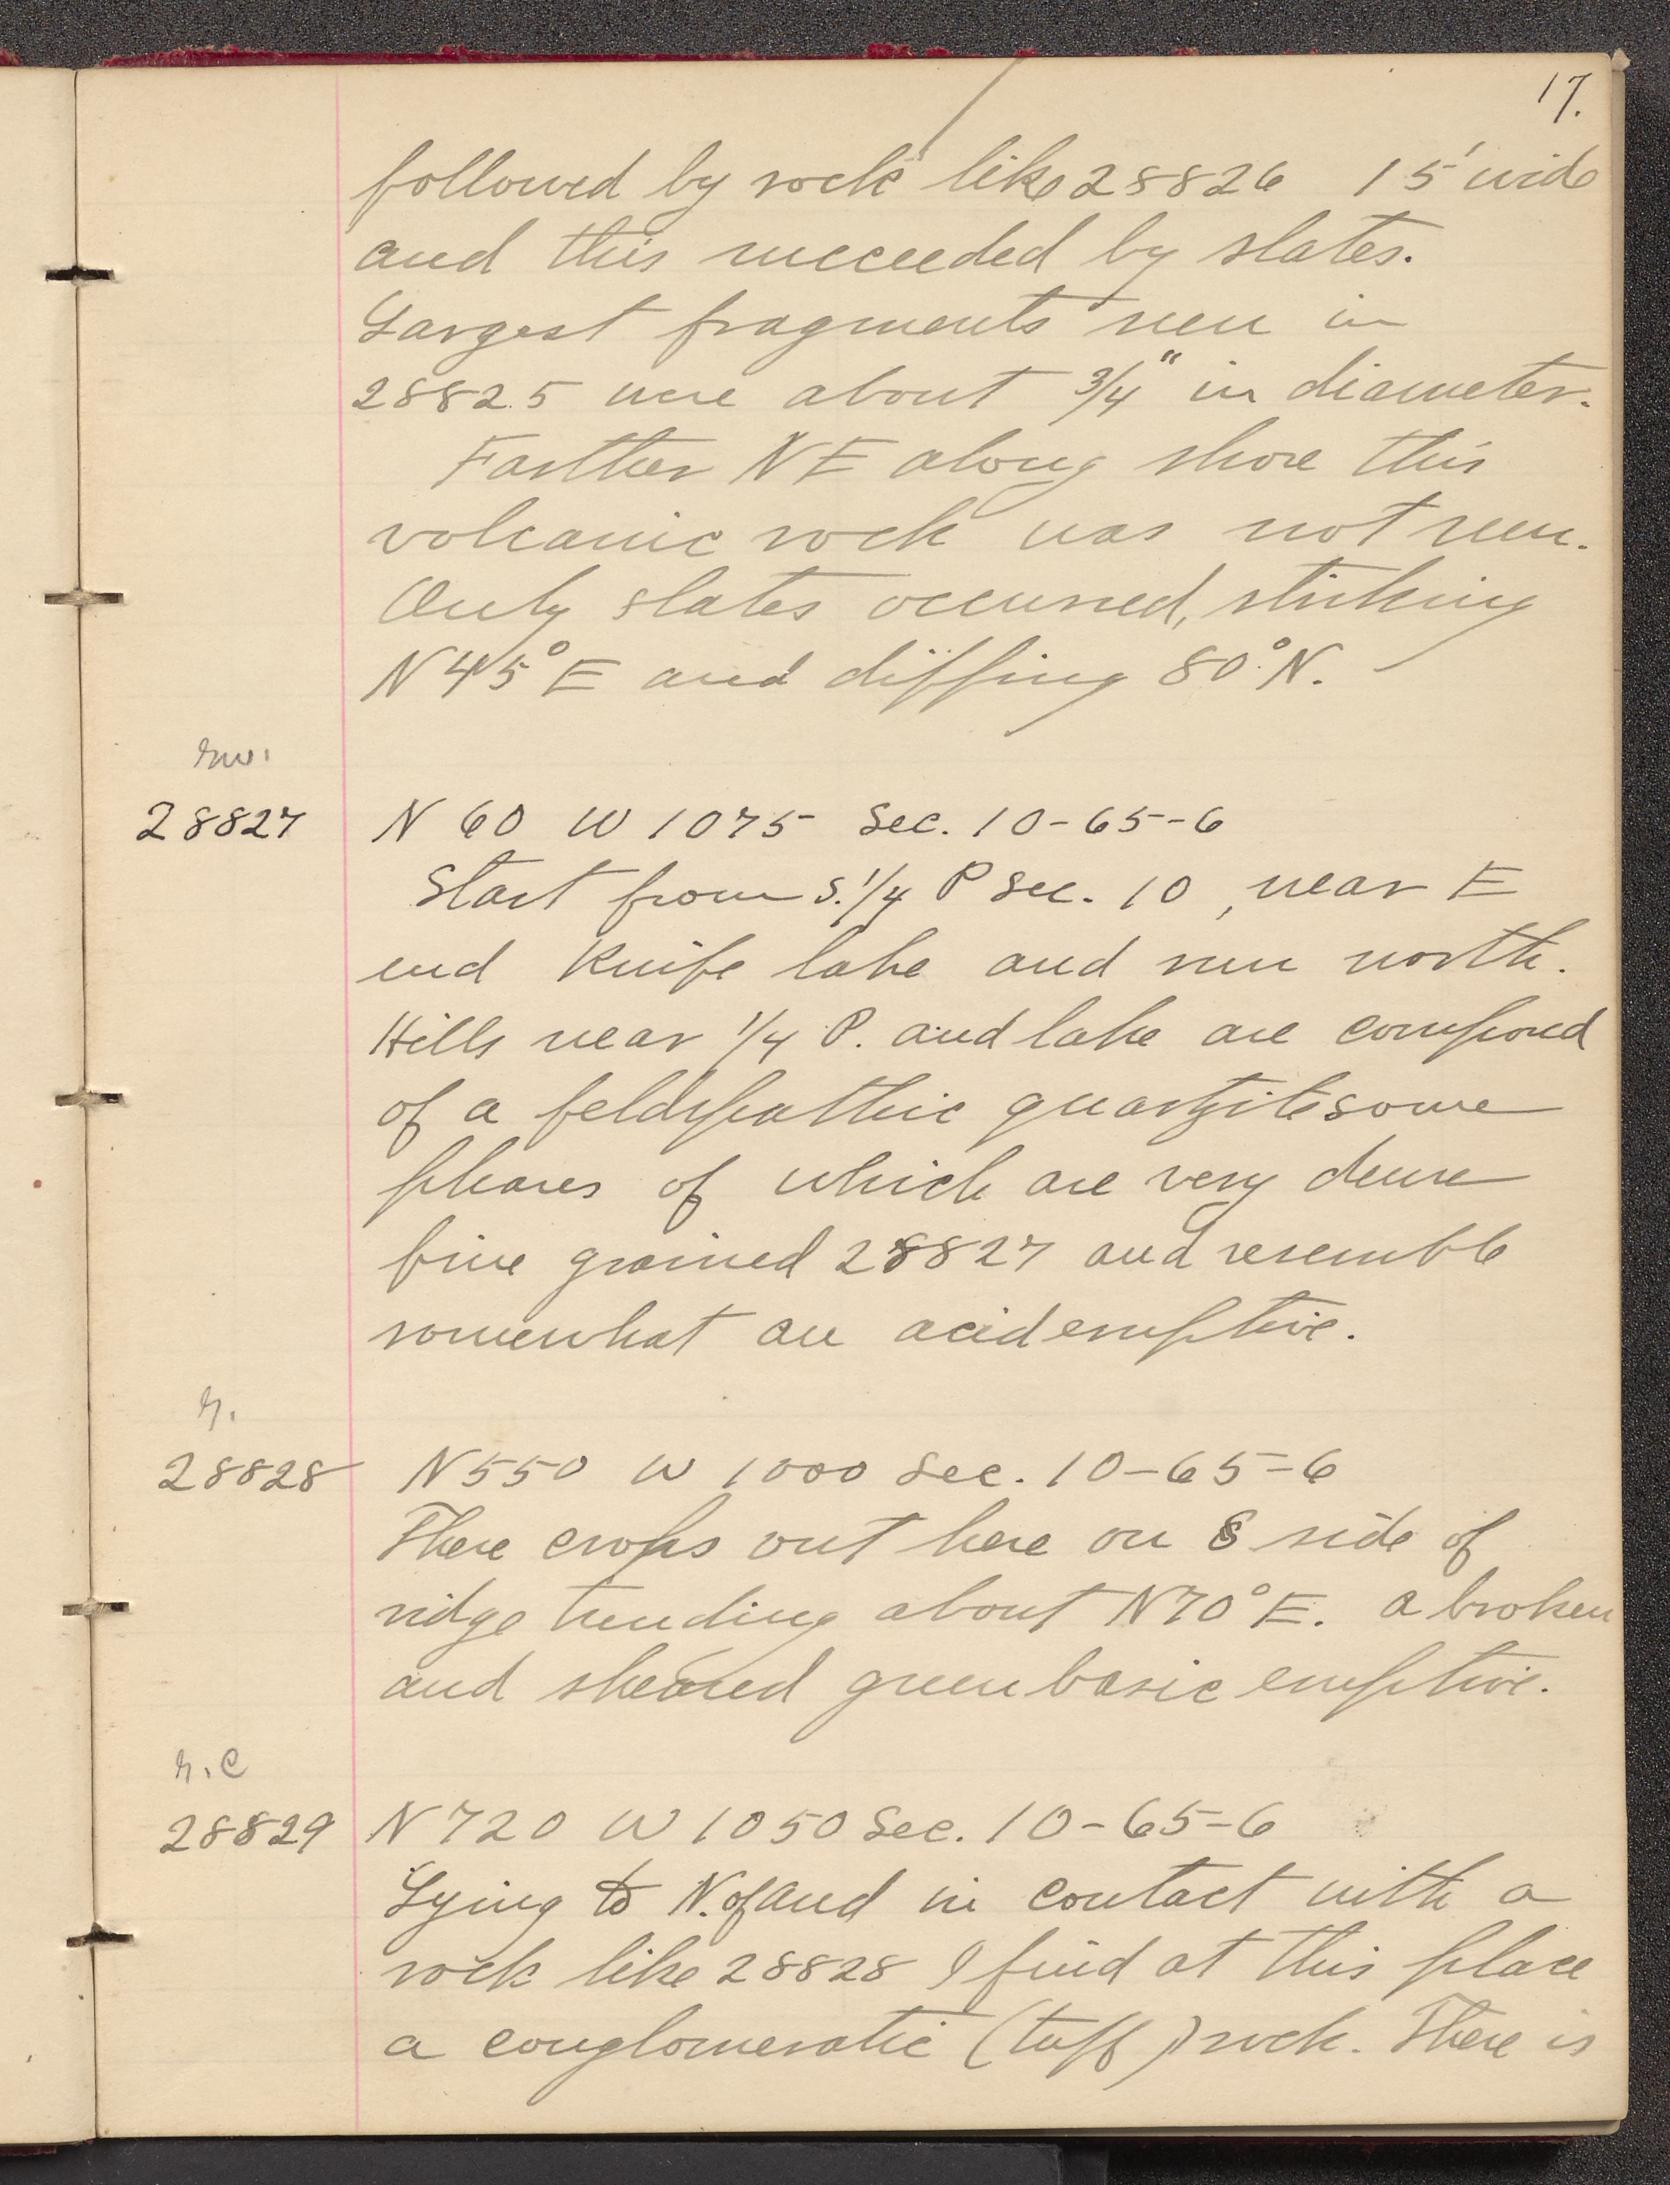 17.
followed by rock like 28826 15' wide
and this succeeded by slates.
Largest fragments seen in
28825 were about 3/4" in diameter.
Farther NE along shore this
volcanic rock was not seen.
Only slates occurred, striking
N 45° E and dipping 80° N.
28827 N 60 W 1075 Sec. 10-65-6
Start from S. 1/4 P Sec. 10, near E
end Knife lake and run north.
Hills near 1/4 P. and lake are composed
of a feldspathic quartzite some
phases of which are very dense
fine grained 28827 and resemble
somewhat an acid eruptive.
28828 N 550 W 1000 Sec. 10-65-6
There crops out here on S side of
ridge trending about N70° E. a broken
and sheared green basic eruptive.
28829 N 720 W 1050 Sec. 10-65-6
Lying to N. of and in contact with a
rock like 28828 I find at this place
a conglomeratic (tuff) rock. There is